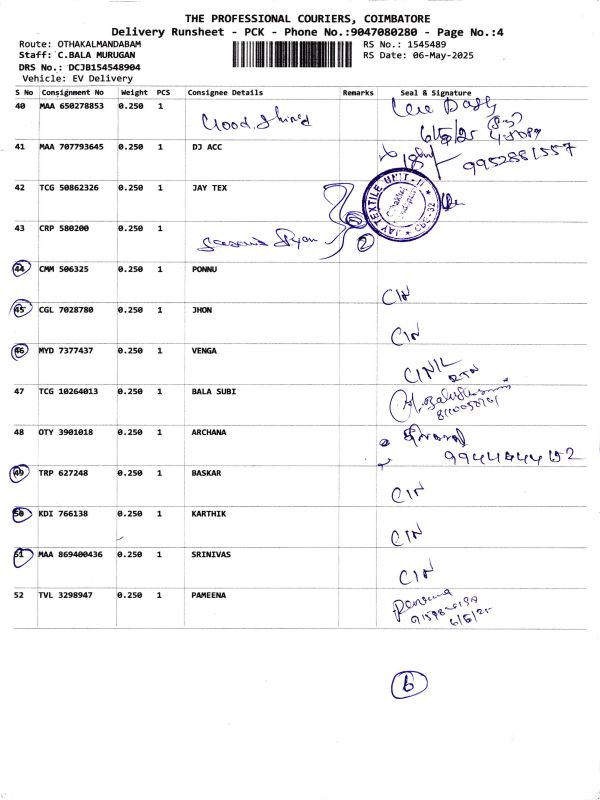 THE PROFESSIONAL COURIERS, COIMBATORE
Delivery Runsheet - PCK - Phone No.:9047080280 - Page No.:4
Route: OTHAKALMANDABAM
Staff: C.BALA MURUGAN
DRS No.: DCJB154548904
Vehicle: EV Delivery
RS No.: 1545489
RS Date: 06-May-2025
S No Consignment No Weight PCS Consignee Details Remarks Seal & Signature
40 MAA 650278853 0.250 1
41 MAA 707793645 0.250 1 DJ ACC 9952881557
42 TCG 50862326 0.250 1 JAY TEX
JAY TEXTILE UNIT - II CBE-32
43 CRP 580200 0.250 1 2
44 CMM 506325 0.250 1 PONNU CIN
45 CGL 7028780 0.250 1 JHON CIN
46 MYD 7377437 0.250 1 VENGA CIN/L
47 TCG 10264013 0.250 1 BALA SUBI
48 OTY 3901018 0.250 1 ARCHANA
49 TRP 627248 0.250 1 BASKAR CIN
50 KDI 766138 0.250 1 KARTHIK CIN
51 MAA 869400436 0.250 1 SRINIVAS CIN
52 TVL 3298947 0.250 1 PAMEENA
6/5/25
6